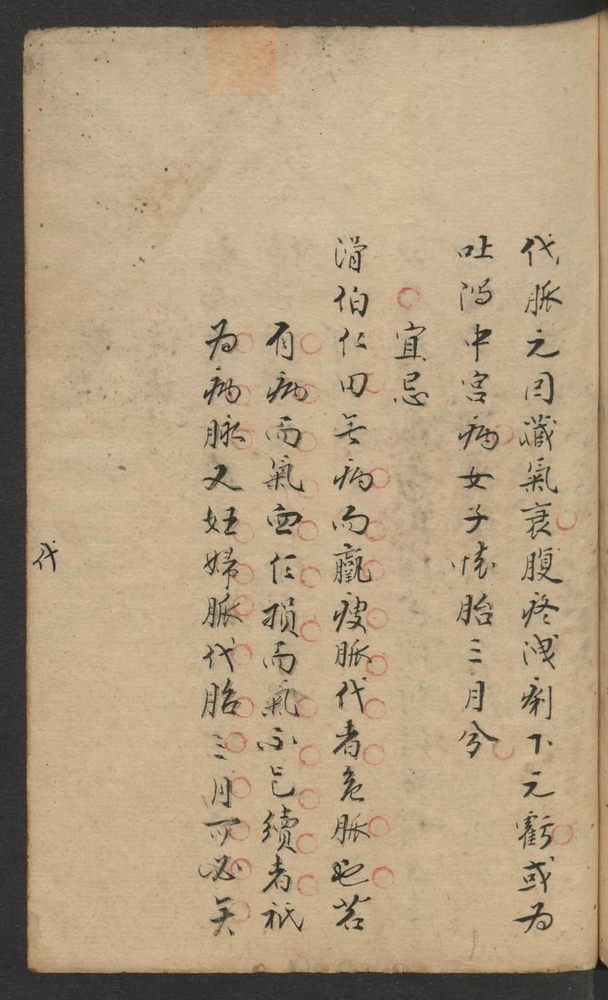 代脈元因藏氣衰腹疼洩痢下元虧或為
吐瀉中宮病女子懷胎三月兮
宜忌
滑伯仁曰无病而羸瘦脈代者危脈也若
有病而氣血乍損而氣不已續者祇
為病脉又妊婦脈代胎三月可必矣
代